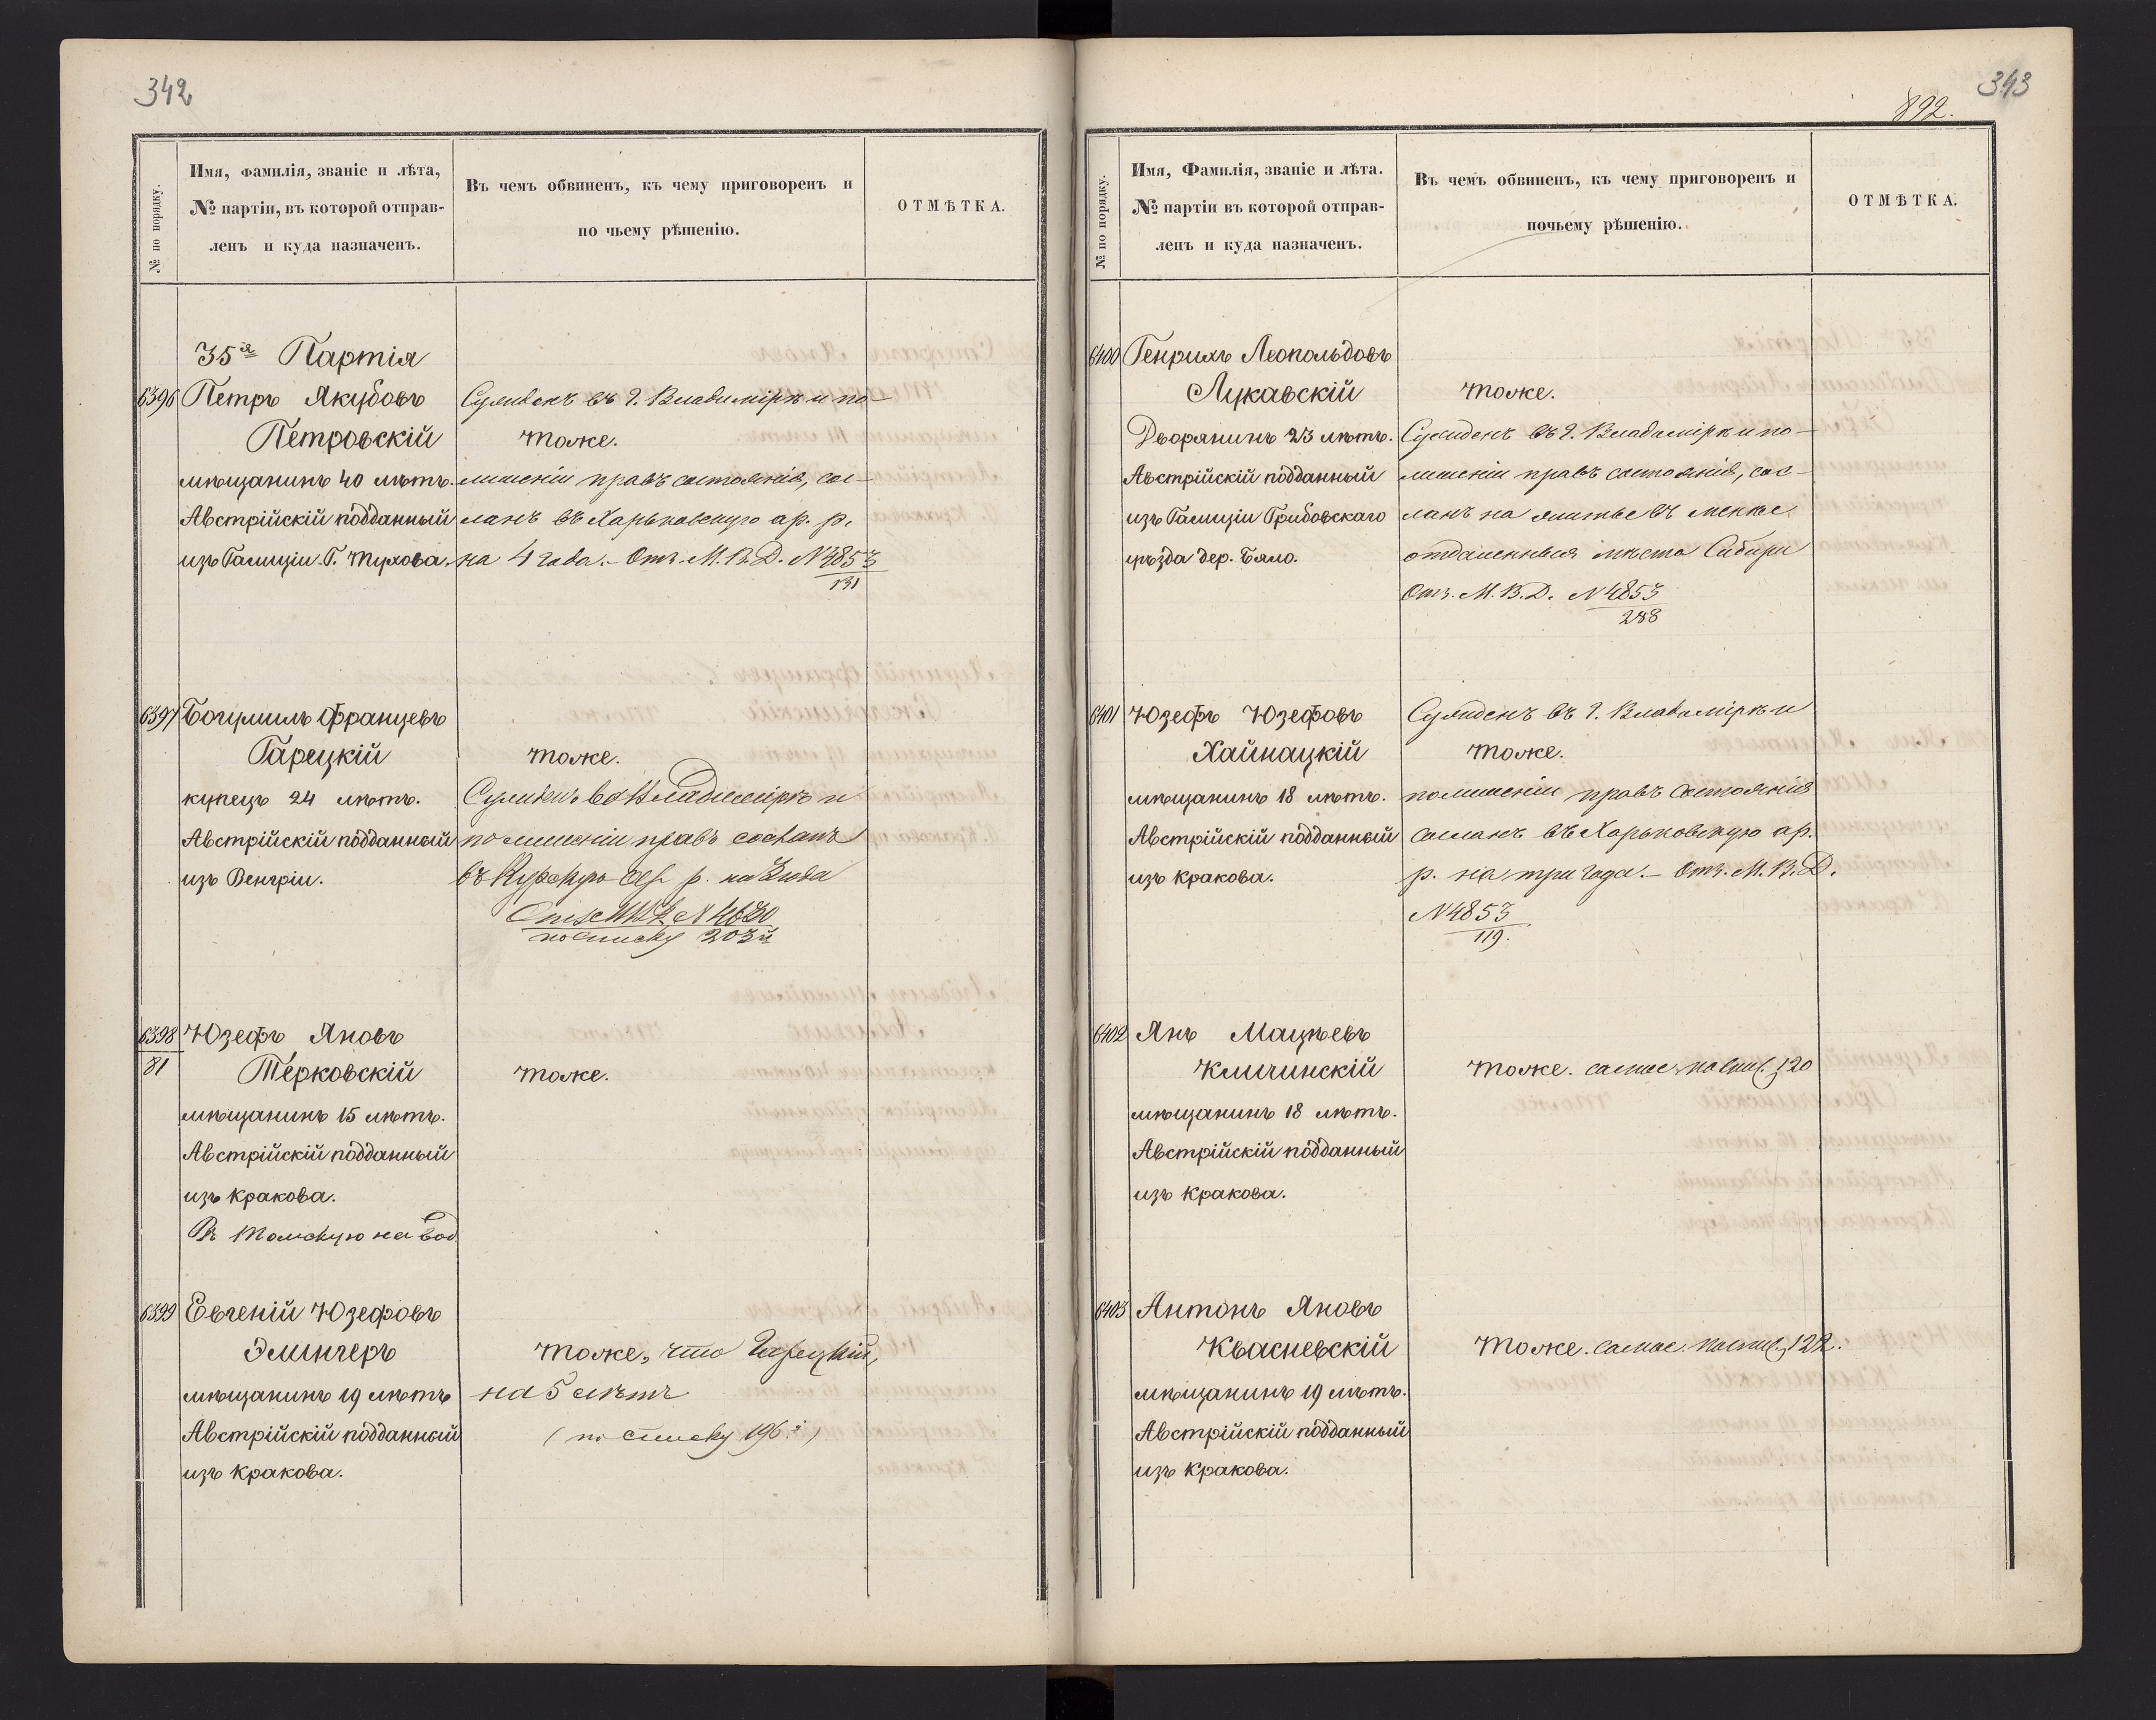 342
№ по порядку.
Имя, фамилія, званіе и лѣта,
№ партіи, въ которой отправ-
ленъ и куда назначенъ.
Въ чемъ обвиненъ, къ чему приговоренъ и
по чьему рѣшенію.
ОТМѢТКА.
35я Партія
6396 Петръ Якубовъ
Петровскій
мѣщанинъ 40 лѣтъ.
Австрійскій подданный
изъ Галиціи Г. Тухова.
Сужденъ въ г. Владимірѣ и по
тоже.
лишеніи правъ состоянія, сос-
ланъ въ Харьковскую ар. р.
на 4 года. - Отз. М. В. Д. N 4853
131
6397 Богумилъ Францевъ
Гарецкій
купецъ 24 лѣтъ.
Австрійскій подданный
изъ Венгріи.
тоже.
Сужденъ во Владимірѣ и
по лишеніи правъ сосланъ
въ Курскую ар. р. на 2 года
по списку 203й
6398
81
Юзефъ Яновъ
Терковскій
мѣщанинъ 15 лѣтъ.
Австрійскій подданный
изъ Кракова.
Въ Томскую на вод.
тоже.
6399 Евгеній Юзефовъ
Элингеръ
мѣщанинъ 19 лѣтъ
Австрійскій подданный
изъ Кракова.
тоже, что Гарецкій,
на 5 лѣтъ
(по списку 196й)
343
892.
№ по порядку.
Имя, Фамилія, званіе и лѣта.
№ партіи въ которой отправ-
ленъ и куда назначенъ.
Въ чемъ обвиненъ, къ чему приговоренъ и
почьему рѣшенію.
ОТМѢТКА.
6400 Генрихъ Леопольдовъ
Лукавскій
Дворянинъ 23 лѣтъ.
Австрійскій подданный
изъ Галиціи Грибовскаго
уѣзда дер. Бяло.
тоже.
Сужденъ въ г. Владимірѣ и по-
лишеніи правъ состоянія, сос-
ланъ на житье въ менѣе
отдаленныя мѣста Сибири
Отз. М. В. Д. N 4853
288
6401 Юзефъ Юзефовъ
Хайнацкій
мѣщанинъ 18 лѣтъ.
Австрійскій подданный
изъ Кракова.
Сужденъ въ г. Владимірѣ и
тоже.
полишеніи правъ состоянія
сосланъ въ Харьковскую ар.
р. на три года. - Отз. М. В. Д.
N 4853
119.
6402 Янъ Мацѣевъ
Кличинскій
мѣщанинъ 18 лѣтъ.
Австрійскій подданный
изъ Кракова.
тоже. самое по спис. 120
6403 Антонъ Яновъ
Квасневскій
мѣщанинъ 19 лѣтъ.
Австрійскій подданный
изъ Кракова.
тоже. самое. по спис. 122.